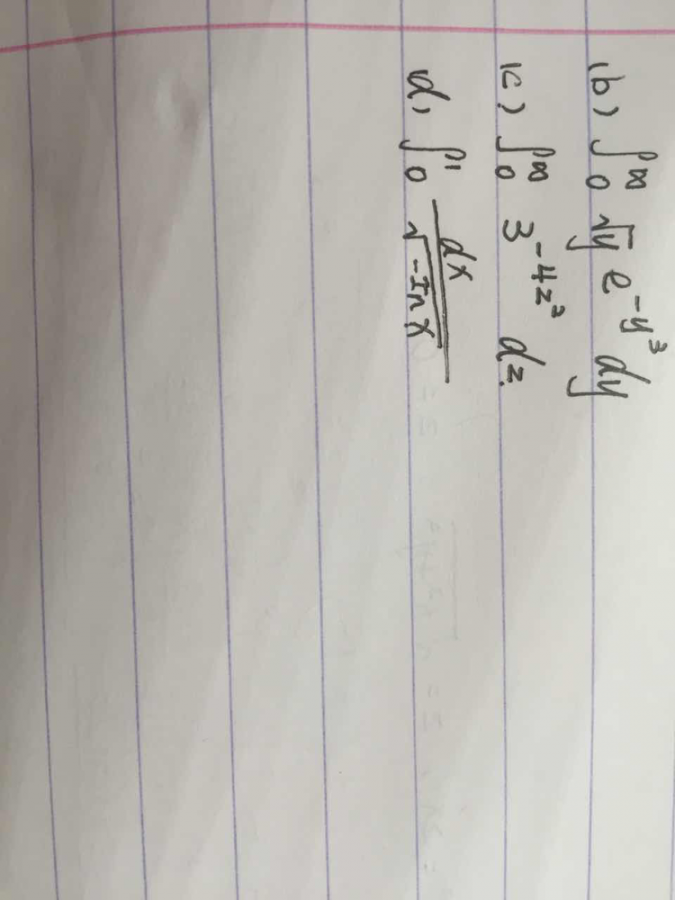 (b) ∫₀^∞ √y e^{-y³} dy
(c) ∫₀^∞ 3^{-4z²} dz.
d) ∫₀¹ dx / √(-In x)